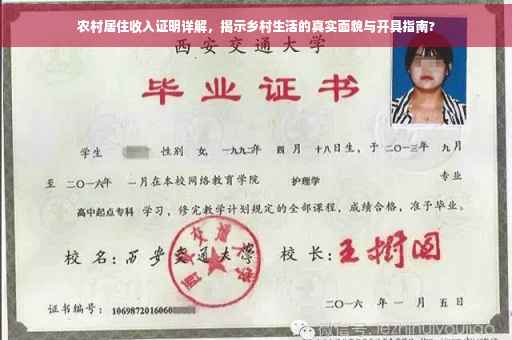 农村居住收入证明详解，揭示乡村生活的真实面貌与开具指南?
西安交通大学
毕业证书
学生 性别 女, 一九九二年 四月 十八日生, 于 二〇一三年 九月
至 二〇一六年 一月在本校网络教育学院 护理学 专业
高中起点专科 学习, 修完教学计划规定的全部课程, 成绩合格, 准予毕业。
校名: 西安交通大学 校长: 王树国
西安交通大学
证书编号: 1069872016060
二〇一六年 一月 五日
微信号: jezhinuiyoujiao